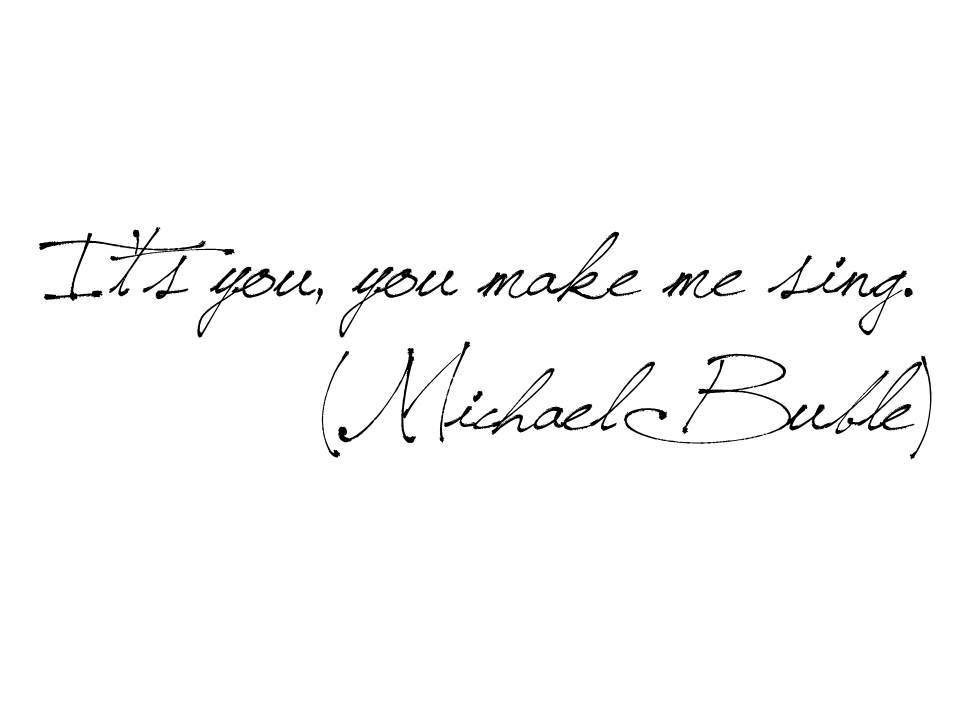 It's you, you make me sing.
(Michael Buble)